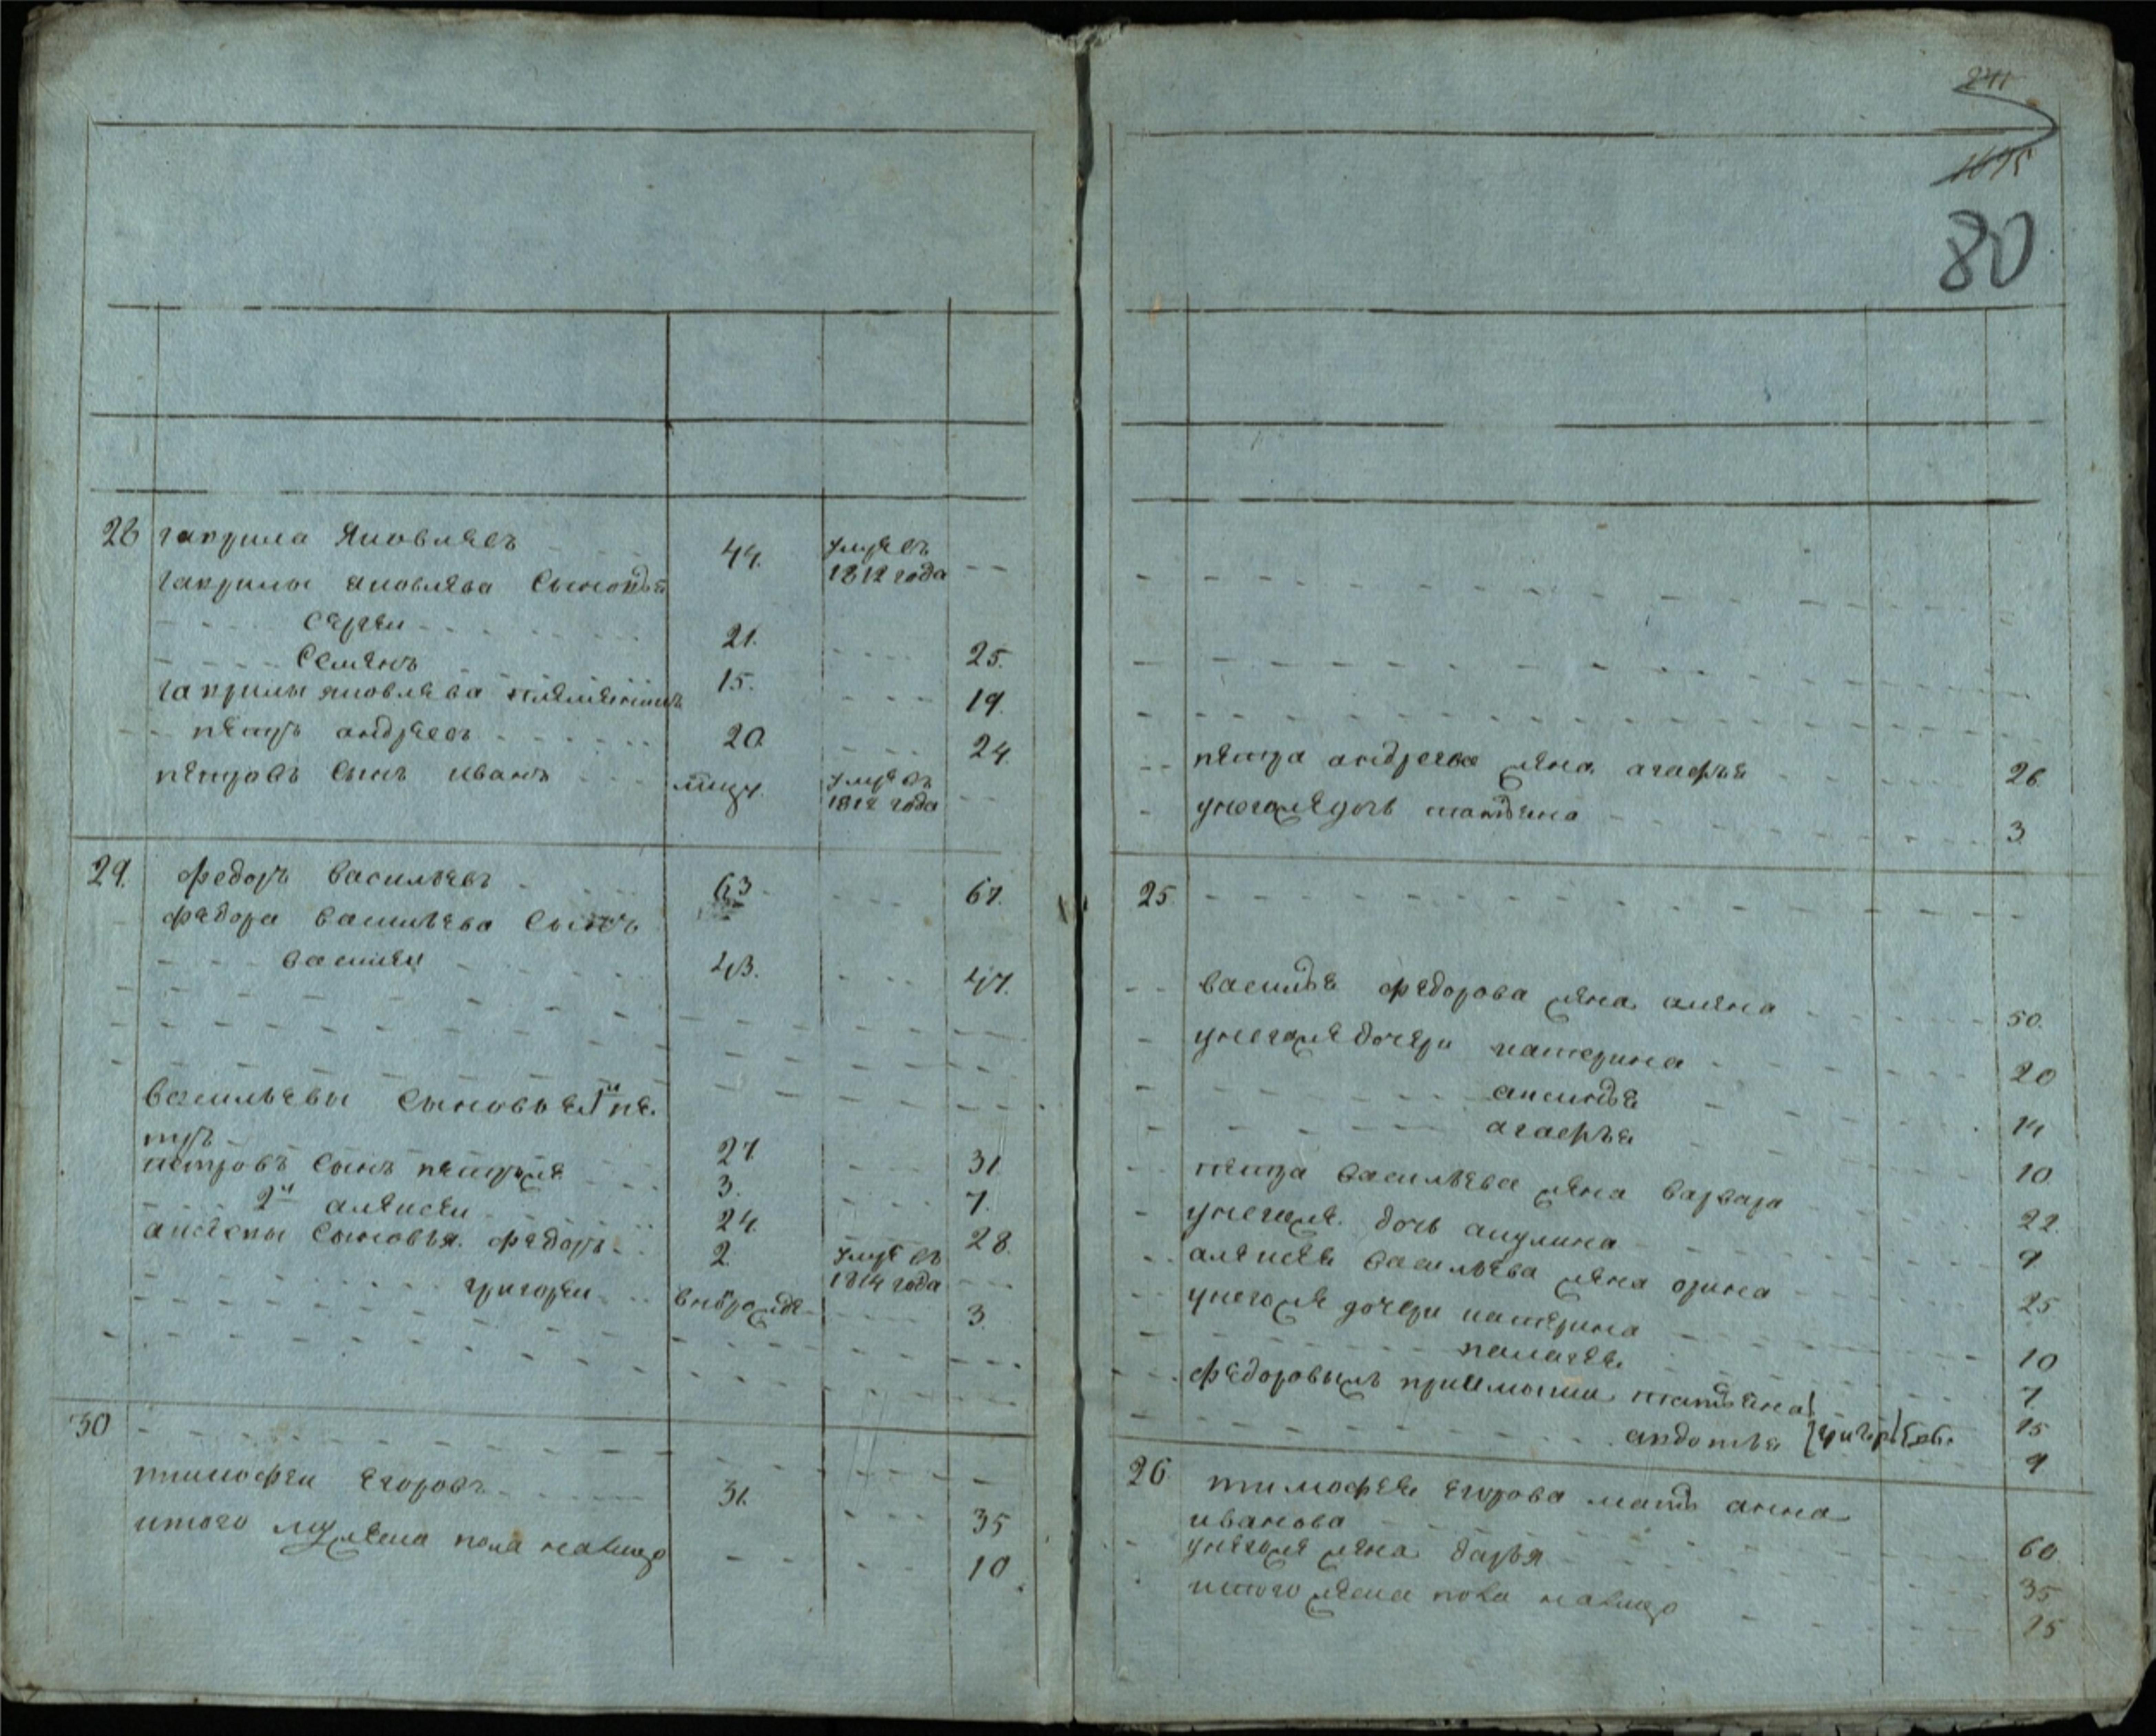 28 гаврила Яковлевъ 44. умре въ
1812 года
гаврилы яковлева Сыновья
Сергеи 21. 25.
Семенъ 15. 19.
гаврилы яковлева племянникъ
петръ андреевъ 20. 24.
петровъ Сынъ иванъ умре въ
1812 года
29. федоръ васильевъ 63 67.
федора васильева Сынъ
василеи 43. 47.
васильевы Сыновья 1й пе
тръ 27. 31.
петровъ Сынъ петръже 3. 7.
2й алексеи 24. 28.
алексеы Сыновья федоръ 2. умре въ
1814 года
григореи внѣреᲂжде 3.
30
тимофеи егоровъ 31. 35
итого мужеска пола налицо 10.
241
1095
80
петра андреева жена агафья 26.
унегожедочь татьяна 3.
25
василья федорова жена алена 50.
унегожедочери катерина 20
аксинья 14
агафья 10.
петра васильева жена варвара 22.
унегоже дочь акулина 9
алексея васильева жена орина 25
унегоже дочери катерина 10
палагея 7.
федоровымъ татьяна 15
авдотья 9
26 тимофея егорова мать анна
иванова 60.
унегоже жена дарья 35
итого женска пола налицо 15